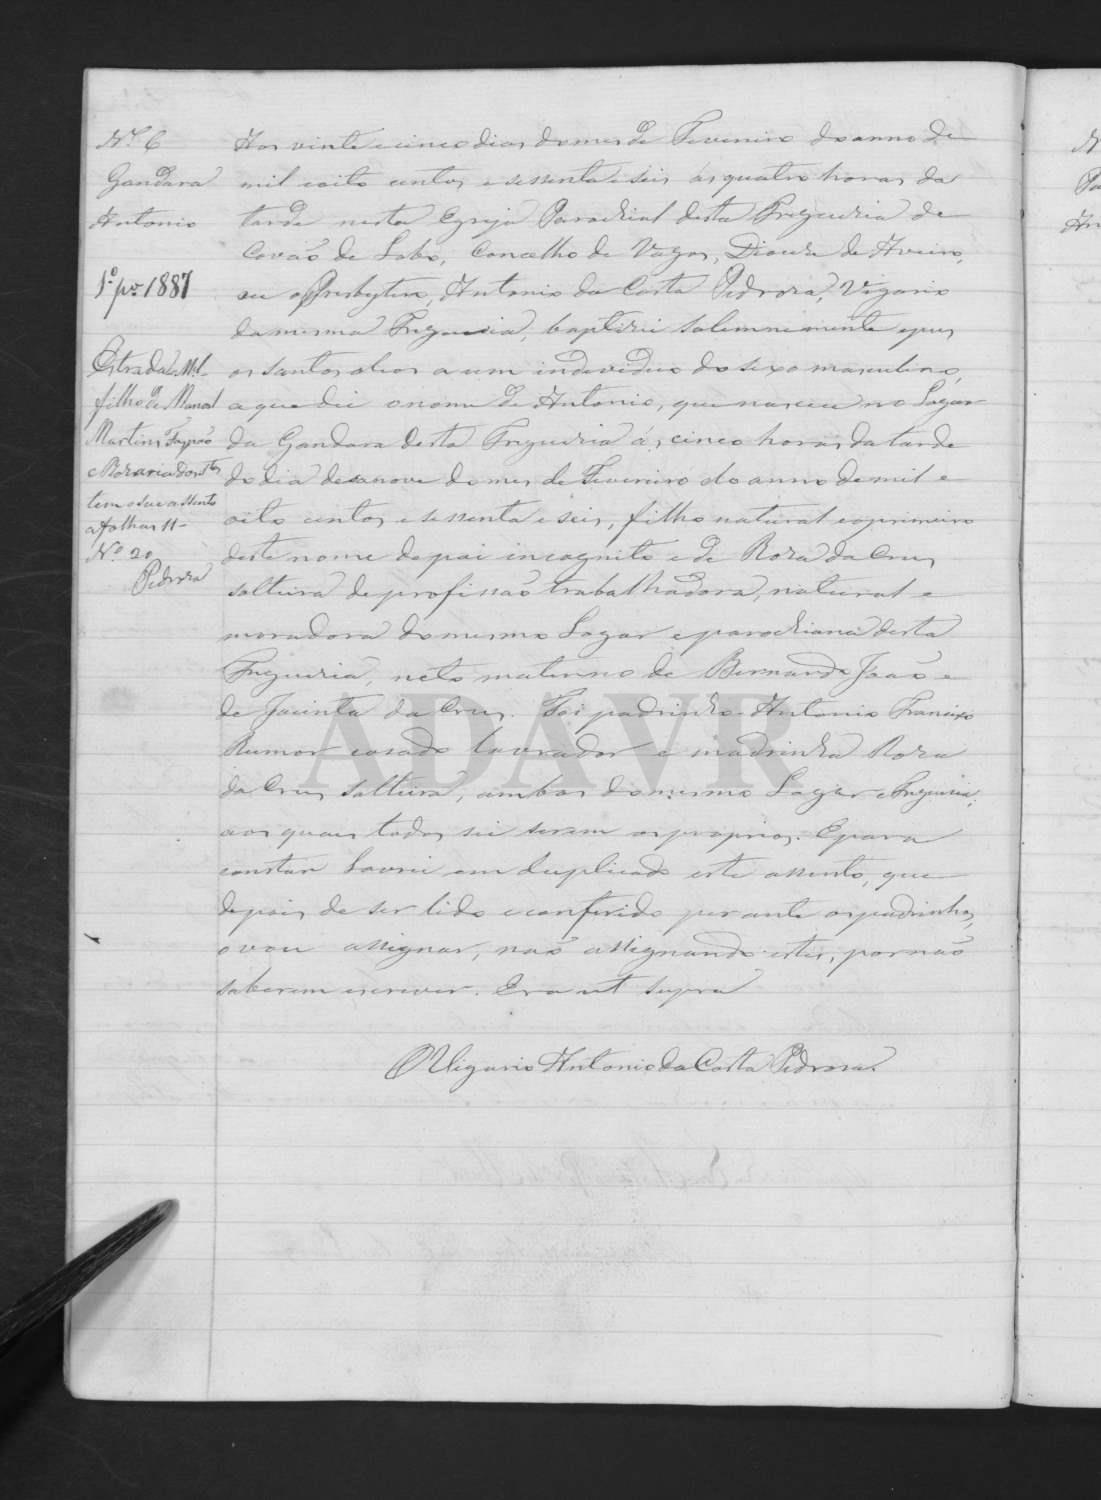 Nº 6
Gandara
Antonio
1º pº 1887
Estrada Mel
filho de Manoel
Martins Tapão
e Rozaria dos Stos
tem o seu assento
a folhas 11-
Nº 20
Pedroza
Aos vinte e cinco dias do mes de Fevereiro do anno de
mil e oito centos e sessenta e seis ás quatro horas da
tarde nesta Egreja Parochial desta Freguezia de
Covão de Lobo, Concelho de Vagos, Diocese de Aveiro,
eu o Presbytero, Antonio da Costa Pedroza, Vigario
da mesma Freguezia, baptizei solemnemente e puz
os santos oleos a um individuo do sexo masculino,
a que dei o nome de Antonio, que nasceu no Lugar
da Gandara desta Freguezia ás cinco horas da tarde
do dia desanove do mes de Fevereiro do anno de mil e
oito centos e sessenta e seis, filho natural e o primeiro
deste nome de pai incognito e de Roza da Cruz
solteira de profissão trabalhadora, natural e
moradora do mesmo Lugar e parochiana desta
Freguezia, neto materno de Bernardo João e
de Jacinta da Cruz. Foi padrinho Antonio Francisco
Rumor casado lavrador e madrinha Roza
da Cruz solteira, ambos do mesmo Lugar e Freguezia,
aos quaes todos sei serem os proprios. E para
constar lavrei em duplicado este assento, que
depois de ser lido e conferido perante os padrinhos,
o vou assignar, não assignando estes, por não
saberem escrever. Era ut supra
O Vigario Antonio da Costa Pedroza.
ADAVR